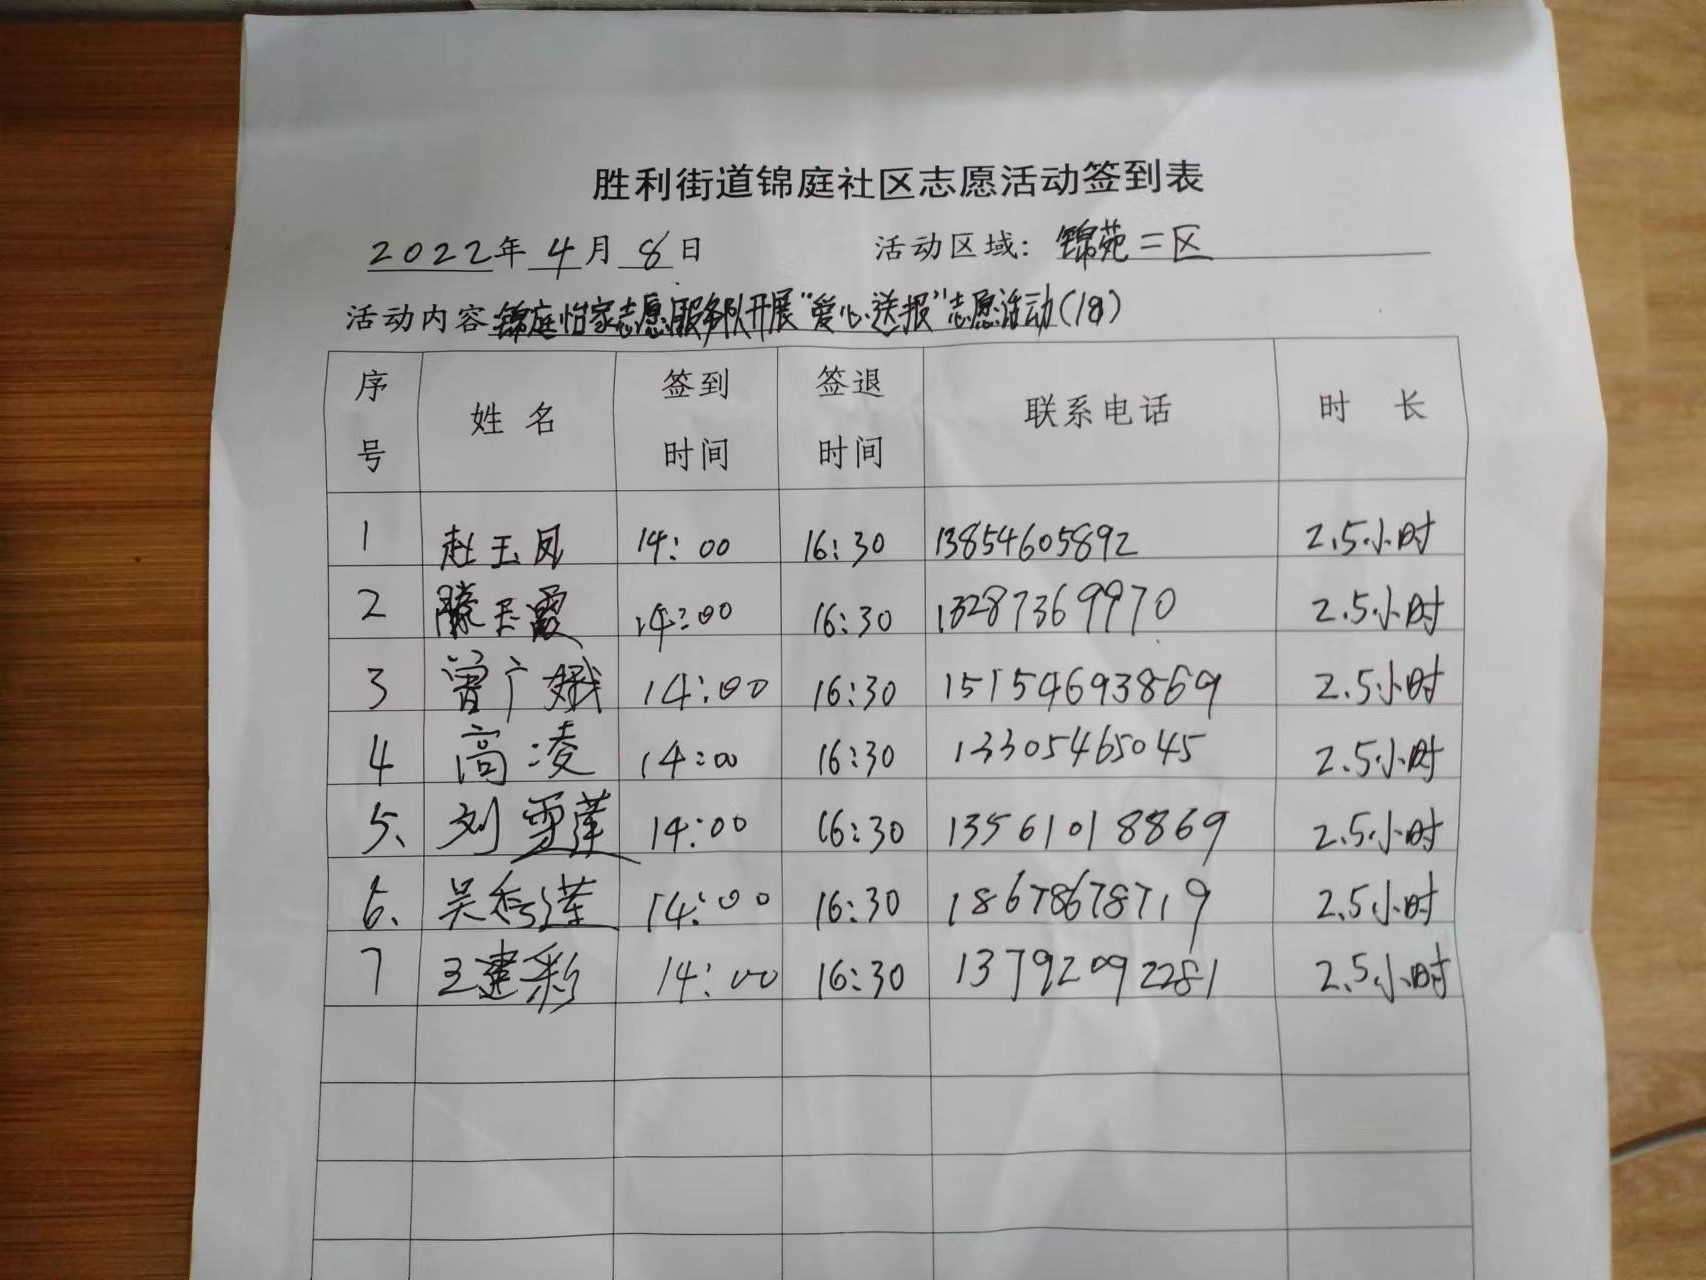 胜利街道锦庭社区志愿活动签到表
2022年 4月 8日 活动区域：锦苑二区
活动内容 锦庭怡家志愿服务队开展“爱心送报”志愿活动(18)
序号 姓名 签到时间 签退时间 联系电话 时长
1 赵玉凤 14:00 16:30 13854605892 2.5小时
2 滕玉霞 14:00 16:30 13287369970 2.5小时
3 曾广娥 14:00 16:30 15154693869 2.5小时
4 高凌 14:00 16:30 13305465045 2.5小时
5、 刘雪莲 14:00 16:30 13561018869 2.5小时
6、 吴秀莲 14:00 16:30 18678678719 2.5小时
7 王建彩 14:00 16:30 13792092281 2.5小时